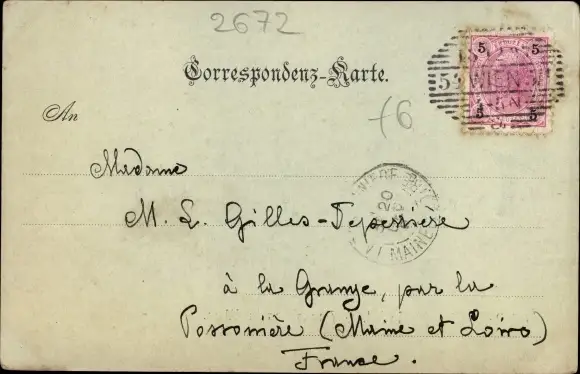 2672
Correspondenz-Karte.
5 5
WIEN
5 5
An
+6
Madame
M. L. Gilles-Deperrière
20
MAINE
à la Grange, par la
Possonière (Maine et Loire)
France.